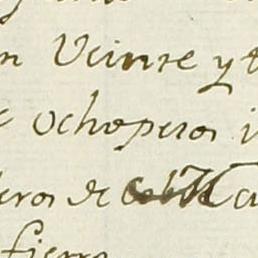 n Veinte y t
ocho pesos i
eros de
fierro